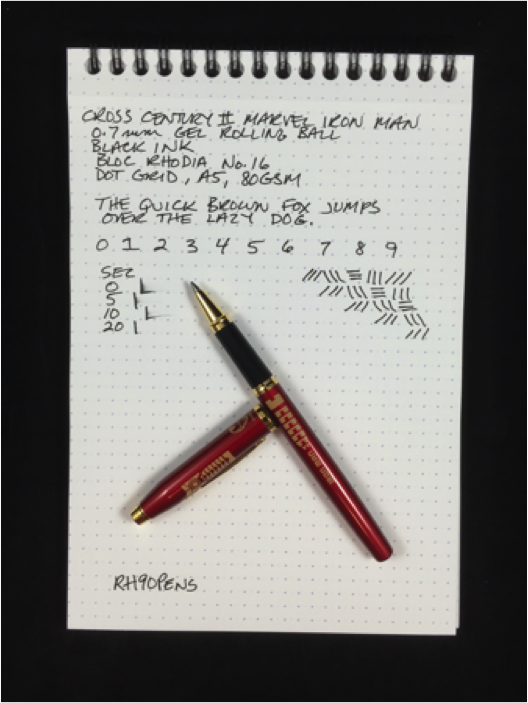 CROSS CENTURY II MARVEL IRON MAN
0.7mm GEL ROLLING BALL
BLACK INK
BLOC RHODIA No.16
DOT GRID, A5, 80GSM
THE QUICK BROWN FOX JUMPS
OVER THE LAZY DOG.
0 1 2 3 4 5 6 7 8 9
SEC
0
5
10
20
RH9OPENS